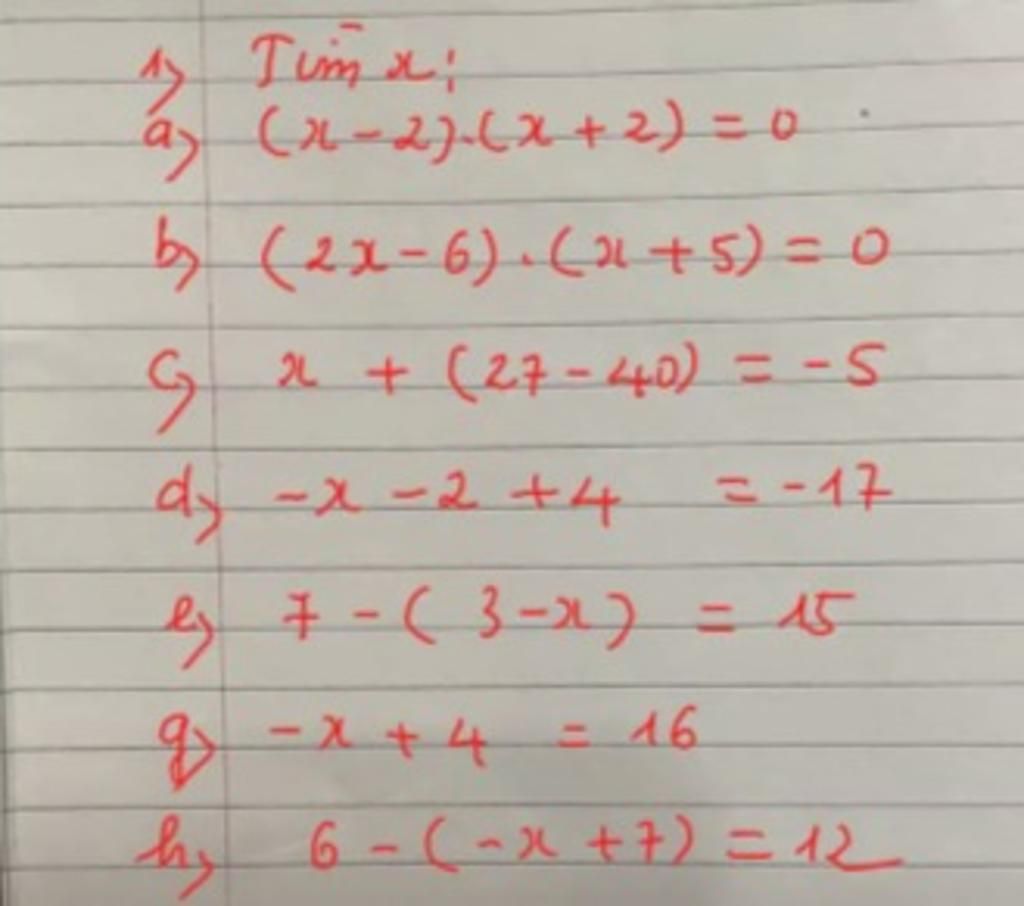 1) Tìm x:
a) (x - 2).(x + 2) = 0
b) (2x - 6).(x + 5) = 0
c) x + (27 - 40) = -5
d) -x - 2 + 4 = -17
e) 7 - (3 - x) = 15
g) -x + 4 = 16
h) 6 - (-x + 7) = 12